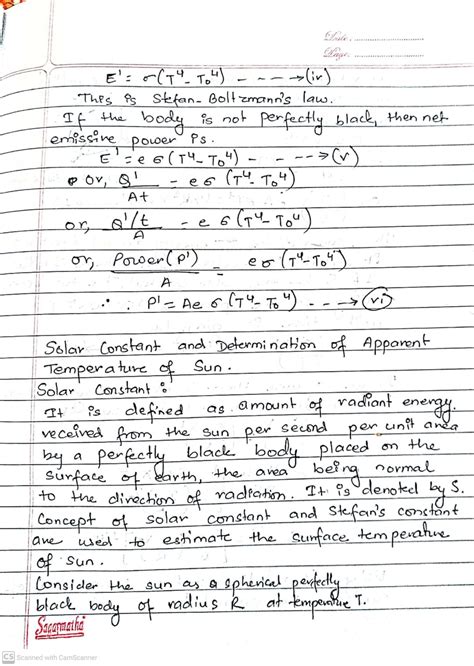 Date...........................
Page...........................
E' = σ(T⁴ - T₀⁴) - - - → (iv)
This is Stefan-Boltzmann's law.
If the body is not perfectly black, then net
emissive power is.
E' = e σ (T⁴ - T₀⁴) - - - → (v)
or, Q'/At = e σ (T⁴ - T₀⁴)
or, Q'/t / A = e σ (T⁴ - T₀⁴)
or, Power(P') / A = e σ (T⁴ - T₀⁴)
∴ P' = Ae σ (T⁴ - T₀⁴) - - - → (vi)
Solar Constant and Determination of Apparent
Temperature of Sun.
Solar Constant :
It is defined as amount of radiant energy
received from the sun per second per unit area
by a perfectly black body placed on the
surface of earth, the area being normal
to the direction of radiation. It is denoted by S.
Concept of solar constant and Stefan's constant
are used to estimate the surface temperature
of sun.
Consider the sun as a spherical perfectly
black body of radius R at temperature T.
Sagarmatha
CS Scanned with CamScanner